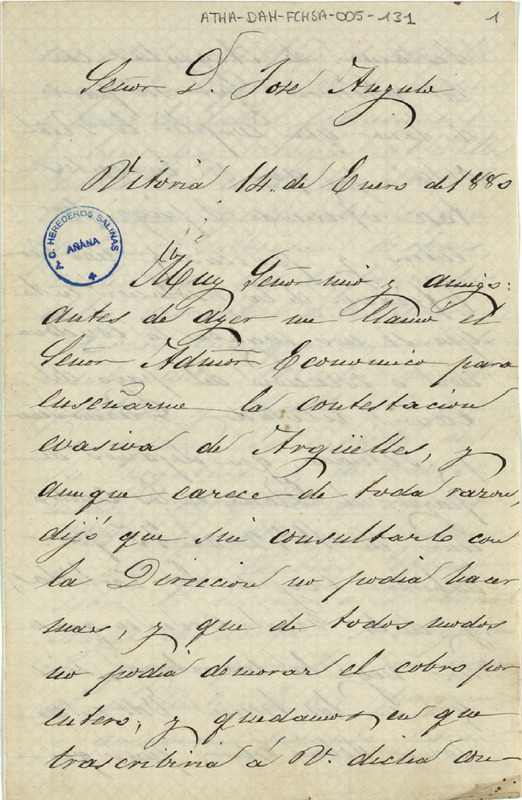 ATHA-DAH-FCHSA-005-131
1
Señor D. José Angulo
Vitoria 14. de Enero de 1880
A. C. HEREDEROS SALINAS
AÑANA
Muy Señor mio y amigo:
antes de ayer me llamó el
Señor Admor Economico para
enseñarme la contestacion
evasiva de Argüelles, y
aunque carece de toda razon,
dijó que sin consultarlo con
la Direccion no podia hacer
mas, y que de todos modos
no podia demorar el cobro por
entero, y quedamos en que
trascribiria á V. dicha con-